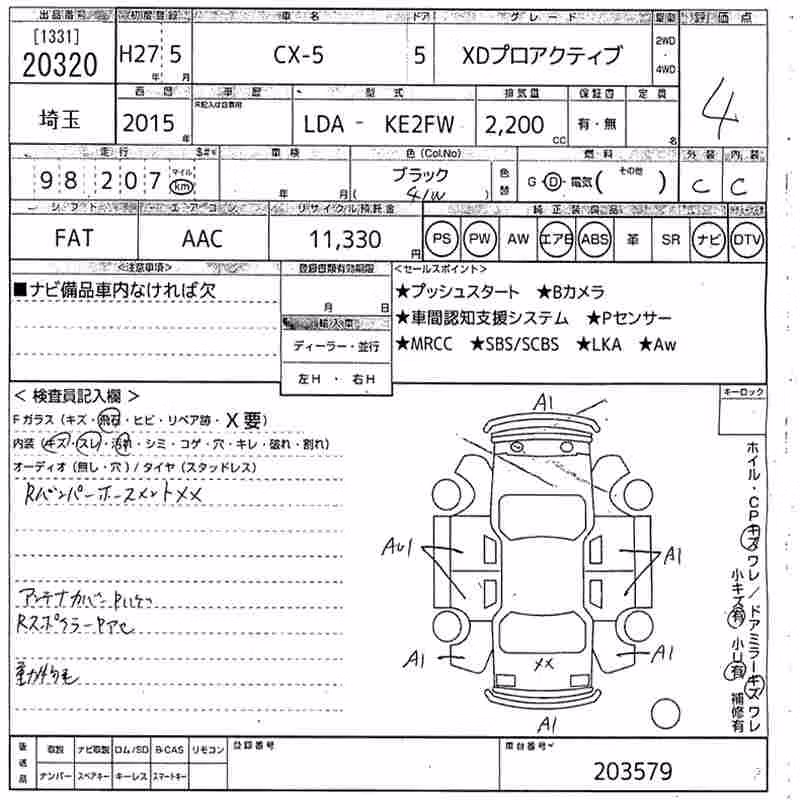 出品番号 初度登録 車名 ドア グレード 駆動 評価点
[1331]
20320 H27年 5月 CX-5 5 XDプロアクティブ 2WD・4WD 4
西暦 車歴 型式 排気量 保証書 定員
未記入は自家用
埼玉 2015年 LDA - KE2FW 2,200cc 有・無 名
走行 S#* 車検 色(Col.No) 燃料 外装 内装
98 207 マイル km 年 月 ブラック 色替 G・D・電気(その他) C C
( 41W )
シフト エアコン リサイクル預託金 純正装備品
FAT AAC 11,330円 PS PW AW エアB ABS 革 SR ナビ DTV
<注意事項> 登録書類有効期限 <セールスポイント>
■ナビ備品車内なければ欠 月 日 ★プッシュスタート ★Bカメラ
輸入車 ★車間認知支援システム ★Pセンサー
ディーラー・並行 ★MRCC ★SBS/SCBS ★LKA ★Aw
左H ・ 右H
<検査員記入欄> キーロック
Fガラス(キズ・飛石・ヒビ・リペア跡・X要)
内装(キズ・スレ・汚れ・シミ・コゲ・穴・キレ・破れ・割れ)
オーディオ(無し・穴)/タイヤ(スタッドレス)
RバンパーホースメントXX
アンテナカバー
RスポイラーP
動物毛
A1
AU1 A1
A1 XX A1
A1
ホイル・CPキズワレ/ドアミラーキズワレ
小キズ有 小U有 補修有
後送品 取説 ナビ取説 ロム/SD B-CAS リモコン 登録番号 車台番号
ナンバー スペアキー キーレス スマートキー 203579